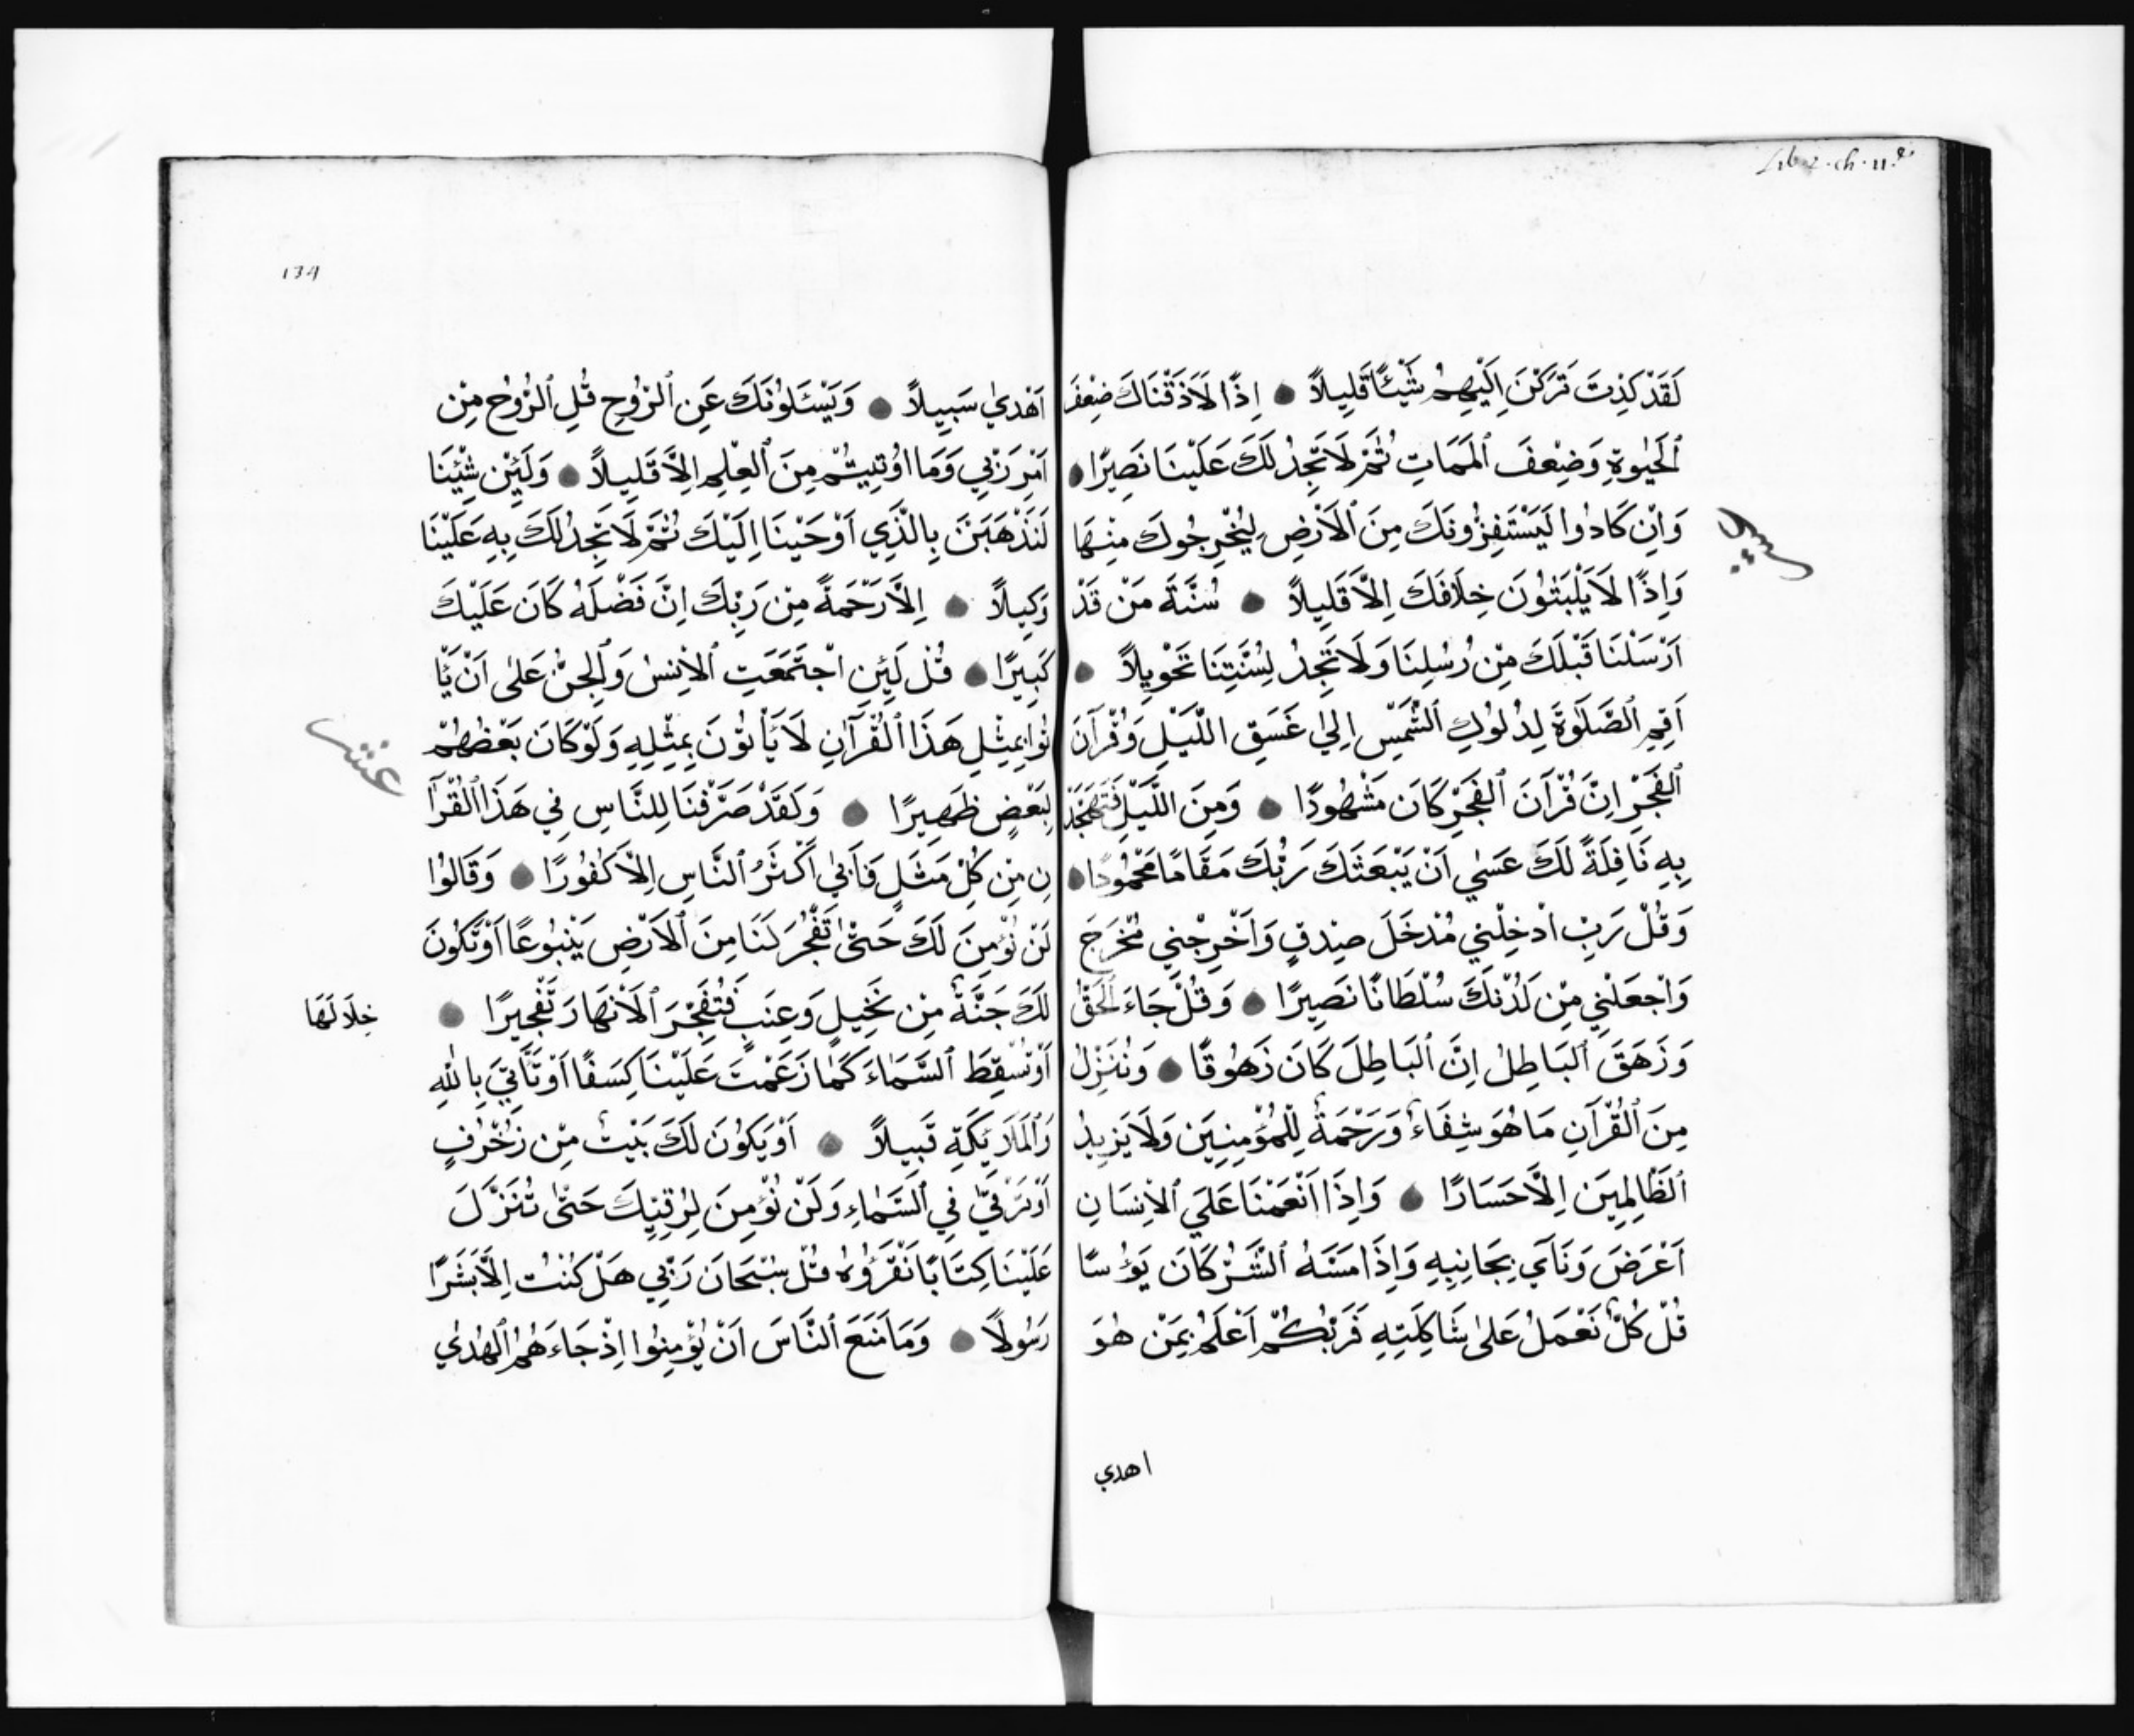 Lib 2. ch. 11.
لَقَدْ كَدِتَ تَرَكَنَ اِلَيْهِمْ شَيْئًا قَلِيلاً ● اِذًا لَاَذَقْنَاكَ ضِعْفَ
ٱلْحَيٰوةِ وَضِعْفَ ٱلْمَمَاتِ ثُمَّ لَا تَجِدُ لَكَ عَلَيْنَا نَصِيرًا ●
وَاِنْ كَادُوا لَيَسْتَفِزُّونَكَ مِنَ ٱلْاَرْضِ لِيُخْرِجُوكَ مِنْهَا
وَاِذًا لَا يَلْبَثُونَ خِلَافَكَ اِلَّا قَلِيلاً ● سُنَّةَ مَنْ قَدْ
اَرْسَلْنَا قَبْلَكَ مِنْ رُسُلِنَا وَلَا تَجِدُ لِسُنَّتِنَا تَحْوِيلاً ●
اَقِمِ ٱلصَّلٰوةَ لِدُلُوكِ ٱلشَّمْسِ اِلٰي غَسَقِ اللَّيْلِ وَقُرْآنَ
ٱلْفَجْرِ اِنَّ قُرْآنَ ٱلْفَجْرِ كَانَ مَشْهُودًا ● وَمِنَ اللَّيْلِ فَتَهَجَّدْ
بِهِ نَافِلَةً لَكَ عَسٰي اَنْ يَبْعَثَكَ رَبُّكَ مَقَامًا مَحْمُودًا ●
وَقُلْ رَبِّ اَدْخِلْنِي مُدْخَلَ صِدْقٍ وَاَخْرِجْنِي مُخْرَجَ
وَاجْعَلْنِي مِنْ لَدُنْكَ سُلْطَانًا نَصِيرًا ● وَقُلْ جَاءَ ٱلْحَقُّ
وَزَهَقَ ٱلْبَاطِلُ اِنَّ ٱلْبَاطِلَ كَانَ زَهُوقًا ● وَنُنَزِّلُ
مِنَ ٱلْقُرْآنِ مَا هُوَ شِفَاءٌ وَرَحْمَةٌ لِلْمُؤْمِنِينَ وَلَا يَزِيدُ
ٱلظَّالِمِينَ اِلَّا حَسَارًا ● وَاِذَا اَنْعَمْنَا عَلَي ٱلْاِنْسَانِ
اَعْرَضَ وَنَآي بِجَانِبِهِ وَاِذَا مَسَّهُ ٱلشَّرُّ كَانَ يَؤُسًا
قُلْ كُلٌّ نَعْمَلُ عَلٰى شَاكِلَتِهِ فَرَبُّكُمْ اَعْلَمُ بِمَنْ هُوَ
اهدي
134
اَهْدٰي سَبِيلاً ● وَيَسْئَلُونَكَ عَنِ ٱلرُّوحِ قُلِ ٱلرُّوحُ مِنْ
اَمْرِ رَبِّي وَمَا اُوتِيتُمْ مِنَ ٱلْعِلْمِ اِلَّا قَلِيلاً ● وَلَئِنْ شِئْنَا
لَنَذْهَبَنَ بِالَّذِي اَوْحَيْنَا اِلَيْكَ ثُمَّ لَا تَجِدُ لَكَ بِهِ عَلَيْنَا
وَكِيلاً ● اِلَّا رَحْمَةً مِنْ رَبِّكَ اِنَّ فَضْلَهُ كَانَ عَلَيْكَ
كَبِيرًا ● قُلْ لَئِنِ اجْتَمَعَتِ ٱلْاِنْسُ وَٱلْجِنُّ عَلٰى اَنْ يَأْ
تُوا بِمِثْلِ هَذَا ٱلْقُرْآنِ لَا يَأْتُوْنَ بِمِثْلِهِ وَلَوْ كَانَ بَعْضُهُمْ
عشر
لِبَعْضٍ ظَهِيرًا ● وَلَقَدْ صَرَّفْنَا لِلنَّاسِ فِي هَذَا ٱلْقُرْآ
نِ مِنْ كُلِّ مَثَلٍ فَاَبٰي اَكْثَرُ ٱلنَّاسِ اِلَّا كُفُورًا ● وَقَالُوا
لَنْ نُؤْمِنَ لَكَ حَتّٰى تَفْجُرَ لَنَا مِنَ ٱلْاَرْضِ يَنْبُوعًا اَوْ تَكُونَ
لَكَ جَنَّةٌ مِنْ نَخِيلٍ وَعِنَبٍ فَتُفَجِّرَ ٱلْاَنْهَارَ تَفْجِيرًا ●
خِلَالَهَا
اَوْ تُسْقِطَ ٱلسَّمَاءَ كَمَا زَعَمْتَ عَلَيْنَا كِسَفًا اَوْ تَأْتِيَ بِاللّٰهِ
وَٱلْمَلَائِكَةِ قَبِيلاً ● اَوْ يَكُونَ لَكَ بَيْتٌ مِنْ زُخْرُفٍ
اَوْ تَرْقٰي فِي ٱلسَّمَاءِ وَلَنْ نُؤْمِنَ لِرُقِيِّكَ حَتّٰى تُنَزِّلَ
عَلَيْنَا كِتَابًا نَقْرَؤُهُ قُلْ سُبْحَانَ رَبِّي هَلْ كُنْتُ اِلَّا بَشَرًا
رَسُولاً ● وَمَا مَنَعَ ٱلنَّاسَ اَنْ يُؤْمِنُوا اِذْ جَاءَهُمُ ٱلْهُدٰي